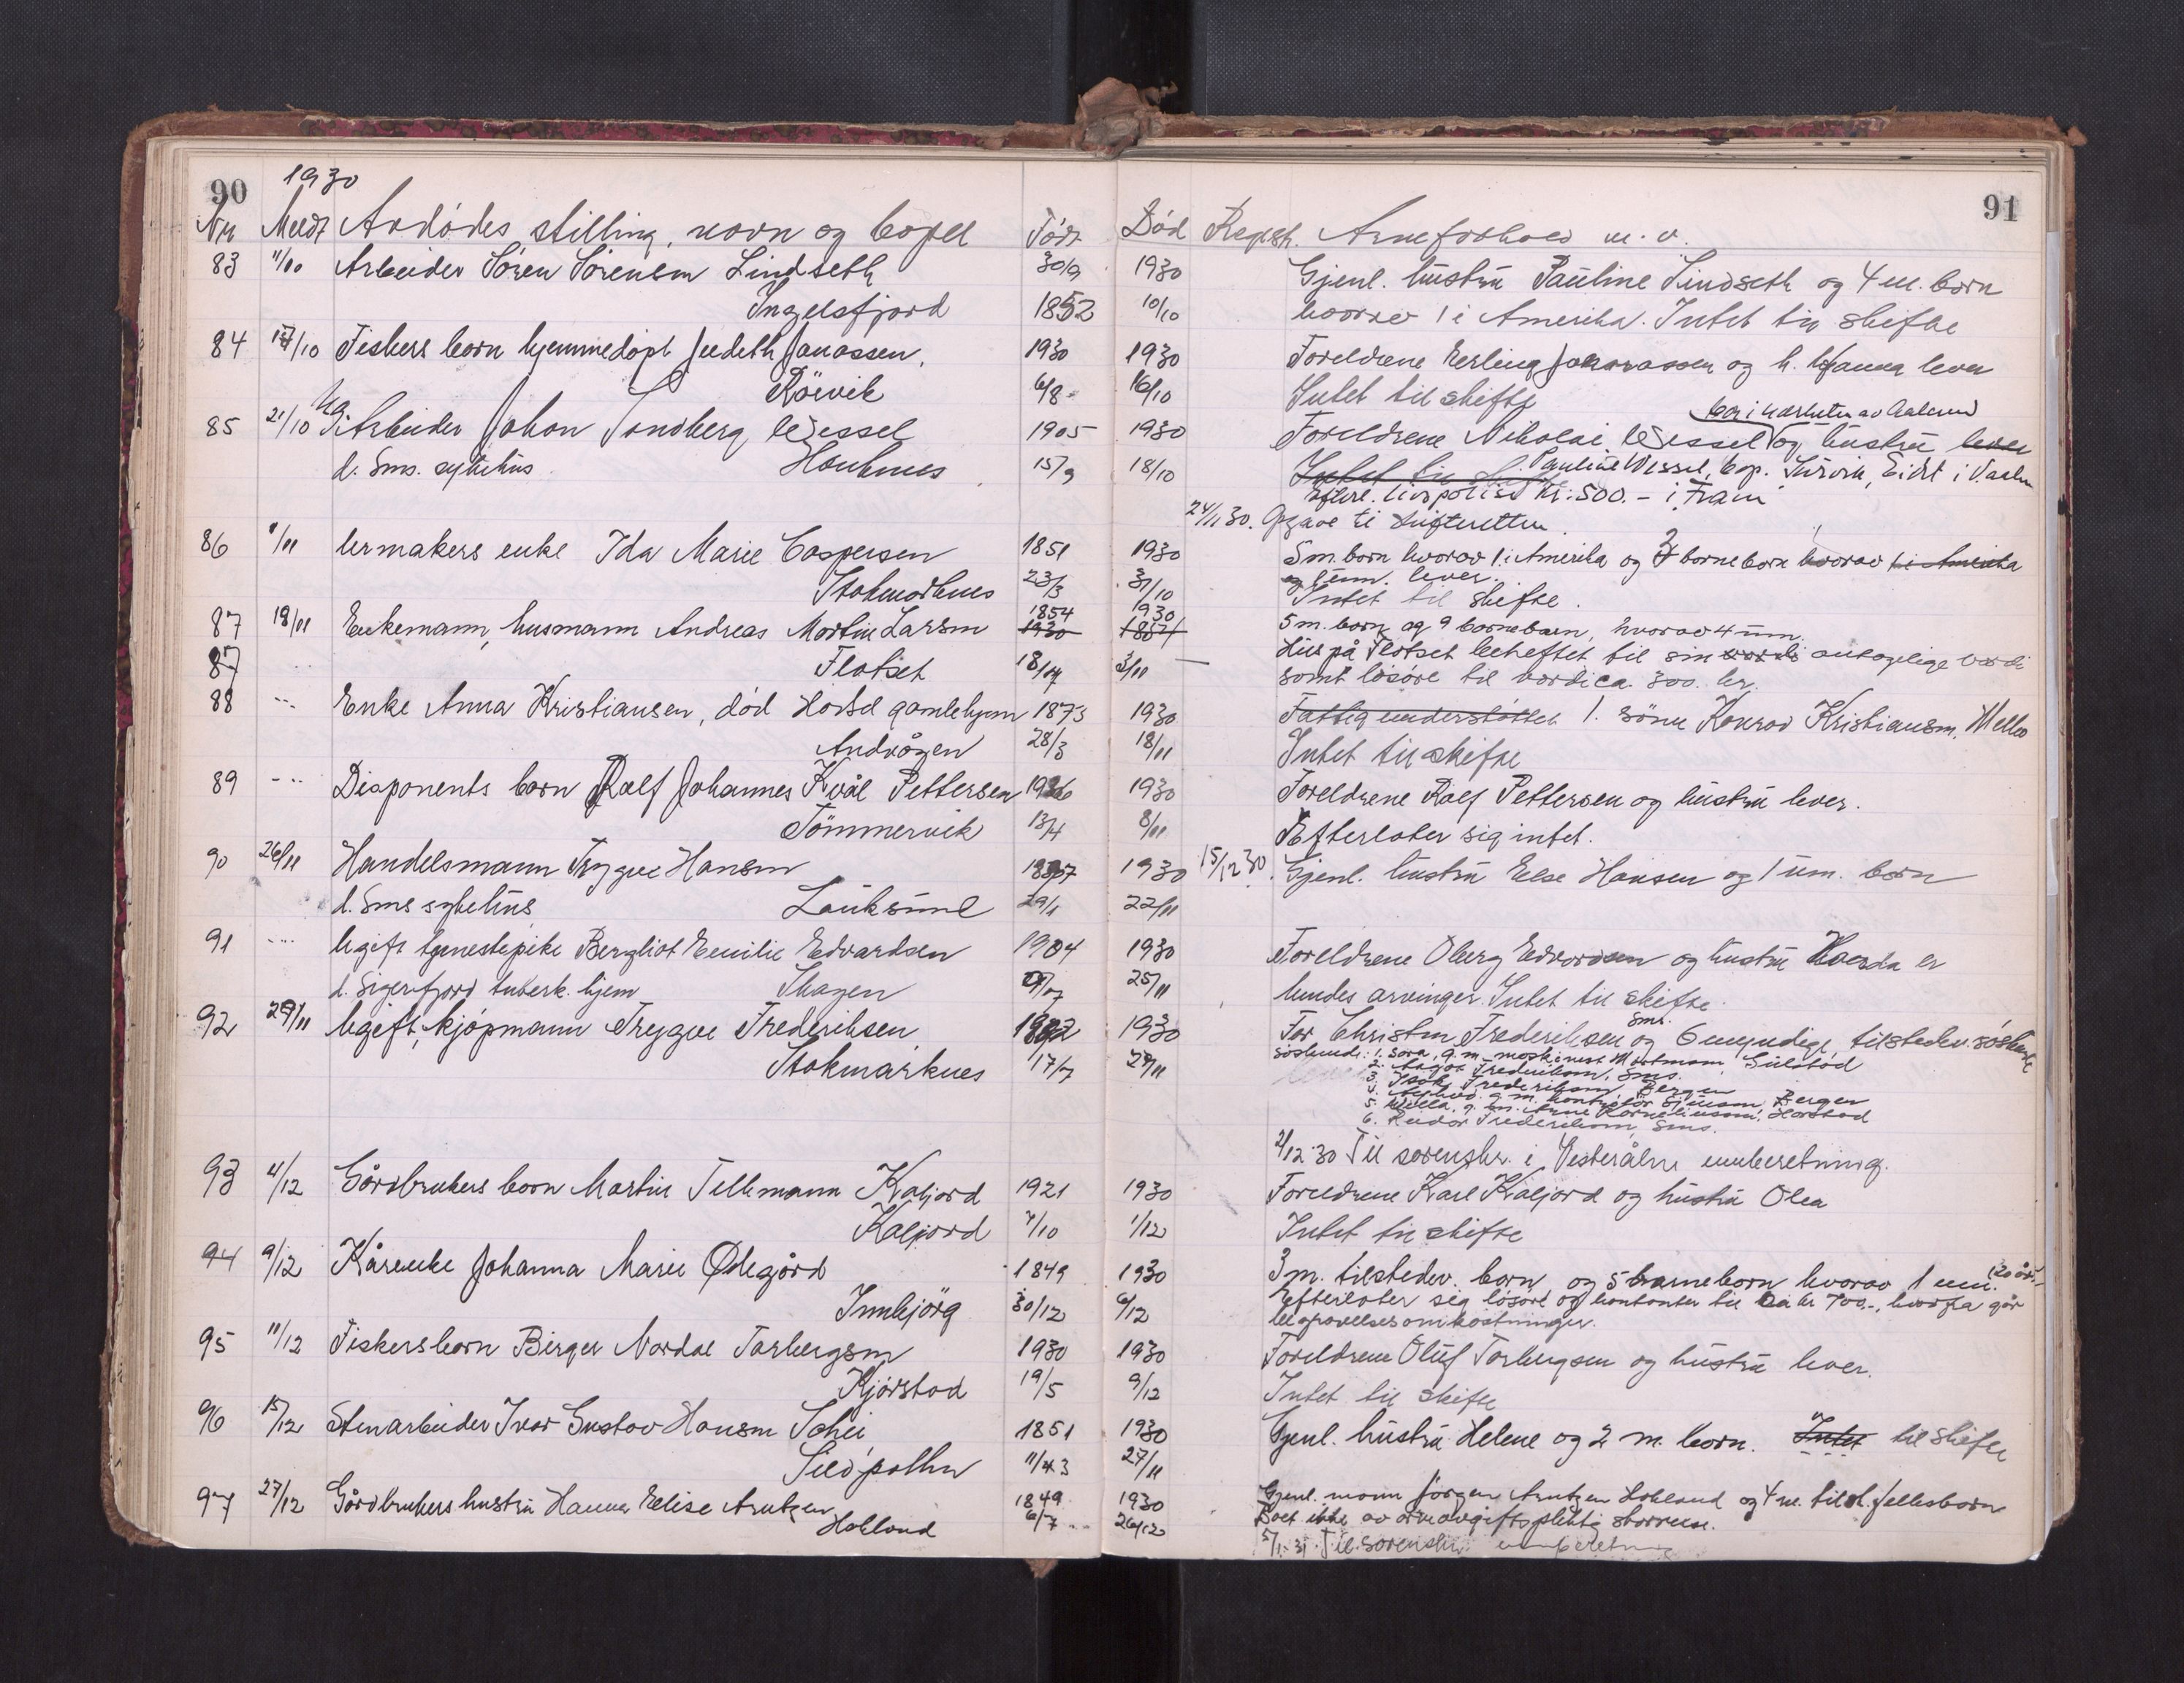 90 1930 91
Nr Meldt Avdødes stilling, navn og bopel Født Død Registr. Arveforhold m.v.
83 11/10 Arbeider Sören Sörensen Lindseth 30/9 1930 Gjenl. hustru Pauline Lindseth og 4 m. born
Ingelsfjord 1852 10/10 hvorav 1 i Amerika. Intet til skifte
84 17/10 Fiskers born hjemmedöpt Judeth Jonassen, 1930 1930 Foreldrene Erling Jonassen og h. Hanna lever
Röivik 6/8 16/10 Intet til skifte
bor i nærheten av
85 21/10 Ug. Arbeider Johan Sandberg Wessel 1905 1930 Foreldrene Nikolai Wessel og hustru lever
d. Sms. sykehus 15/9 18/10 Intet til s. Pauline Wessel, bop. Eidet i
Efterl. livspolise kr. 500.- i Fram
24/11 30. Opgave til skifteretten
86 1/11 Urmakers enke Ida Marie Caspersen 1851 1930 5 m. born hvorav 1 i Amerika og 3 borneborn hvorav 1 i Amerika
Stokmarknes 23/3 31/10 og 1 um. lever.
Intet til skifte.
87 18/11 Enkemann, husmann Andreas Martin Larsen 1854 1930 1930 1854 5 m. born og 9 borneborn, hvorav 4 um.
87 Flatset 18/ 3/11 — Hus på Flatset beheftet til sin værdi antagelige værdi
samt lösöre til værdi ca. 300. kr.
88 -"- Enke Anna Kristiansen, död Hadsel gamlehjem 1873 1930 Fattigunderstöttet 1. sönn Konrad Kristiansen, Melbo
Andvågen 28/3 18/11 Intet til skifte
89 -"- Disponents born Ralf Johannes Kvål Pettersen 1926 1930 Foreldrene Ralf Pettersen og hustru lever.
Tömmervik 13/4 8/11 Efterlater sig intet.
90 26/11 Handelsmann Trygve Hansen 1897 1930 15/12 30. Gjenl. hustru Else Hansen og 1 um. born
d. Sms sykehus Lauksund 29/1 22/11
91 -"- Ugift tjenestepike Bergliot Emilie Edvardsen 1904 1930 Foreldrene Oberg Edvardsen og hustru er
d. Sigerfjord tuberk. hjem Skagen 25/11 hendes arvinger. Intet til skifte.
92 29/11 Ugift, kjöpmann Trygve Frederiksen 1892 1930 Far Christen Frederiksen Sms. og 6 myndige, tilstedev. söskende
Stokmarknes 17/7 29/11 söskende: 1. Sara, g.m. maskinist Mortensen, Gulstad
2. Aagot Frederiksen, Sms.
3. Isak Frederiksen Bergen
4. g.m. kontrolör Simonsen, Bergen
5. Willa, g.m. Arne Korneliussen, Harstad
6. Reidar Frederiksen, Sms.
2/12 30 Til sorenskr. i Vesterålen innberetning.
93 4/12 Gårdbrukers born Martin Tellmann Kaljord 1921 1930 Foreldrene Karl Kaljord og hustru Olea
Kaljord 7/10 1/12 Intet til skifte
94 9/12 Kårenke Johanna Marie Ødegård 1849 1930 3 m. tilstedev. born og 5 barneborn hvorav 1 um. (20 år).
Innbjörg 30/12 6/12 Efterlater sig lösöre og kontanter til ca kr 700.-, hvorfra går
begravelsesomkostninger.
95 11/12 Fiskersborn Birger Nordal Torbergsen 1930 1930 Foreldrene Oluf Torbergsen og hustru lever.
Kjörstad 19/5 9/12 Intet til skifte
96 15/12 Stenarbeider Ivar Gustav Hansen Schei 1851 1930 Gjenl. hustru Helene og 2 m. born. Intet til skifte
Sildpollen 11/ 27/11
97 27/12 Gårdbrukers hustru Hanna Elise Arntzen 1849 1930 Gjenl. mann Jörgen Arntzen Hokland og 4 m. tilst. fellesborn
Hokland 6/7 26/12 Boet ikke av arveavgiftspliktig störrelse.
5/1-31 Til sorenskr. innberetning